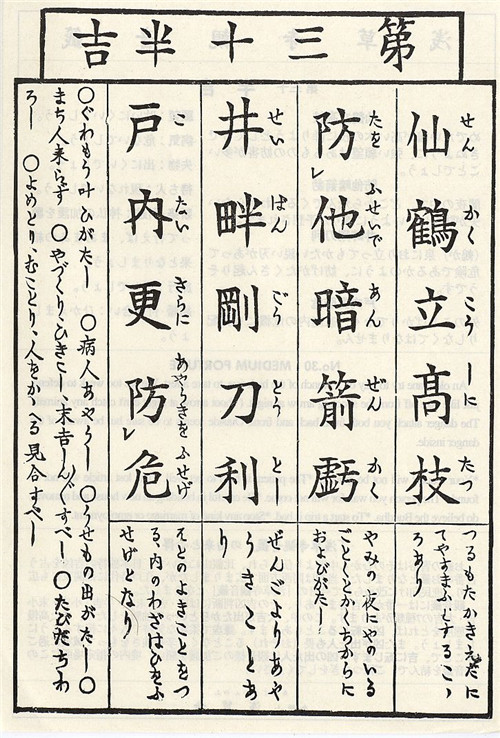 第三十半吉
仙鶴立高枝
せんかくこうしにたつ
つるもたかきえだに
てやすまふとするこゝ
ろあり
防レ他暗箭虧
たをふせいであんぜんか
やみの夜にやのいる
ごとしとかくちからに
およびがたし
井畔剛刀利
せいはんごうとうと
ぜんごよりあや
うきこゝろあ
り
戸内更防レ危
こたいさらにあやうきをふせぐ
とのよきことをきつ
る、内のわざはひをふ
せげとなり
〇ぐわもう叶ひがたし 〇病人あやうし 〇うせもの出がたし 〇
まち人来らず 〇やづくり、ひきこし末吉しん〴〵すべし 〇たびだちわ
ろし 〇よめどり、むことり、人をかゝへる見合すべし